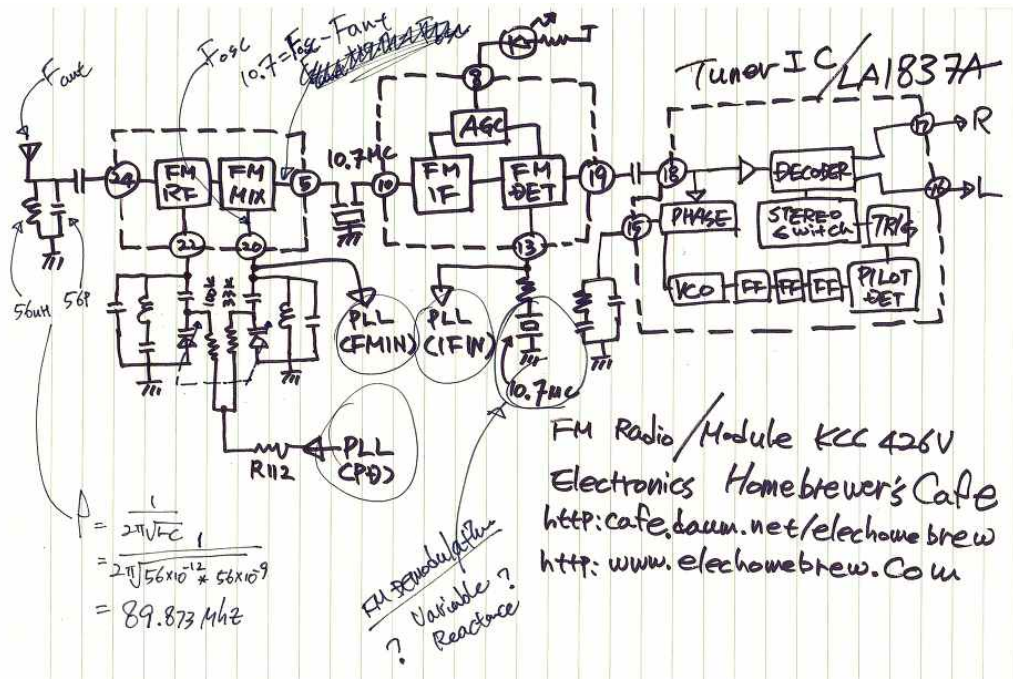 Fant
Fosc
10.7=Fosc-Fant
Tuner IC/LA1837A
8
AGC
24
FM RF
FM MIX
5
10.7MC
10
FM IF
FM DET
19
18
DECODER
17
R
16
L
22
20
13
15
PHASE
STEREO Switch
TRIG
VCO
FF
FF
FF
PILOT DET
56uH
56P
PLL (FMIN)
PLL (IFIN)
10.7MC
R112
PLL (PD)
FM Radio/Module KCC 426V
Electronics Homebrewer's Cafe
http:cafe.daum.net/elechomebrew
http: www.elechomebrew.Com
f= 1
2π√LC
= 1
2π√56×10-12 * 56×10-9
= 89.873 Mhz
FM DEmodulation
? Variable ?
Reactance